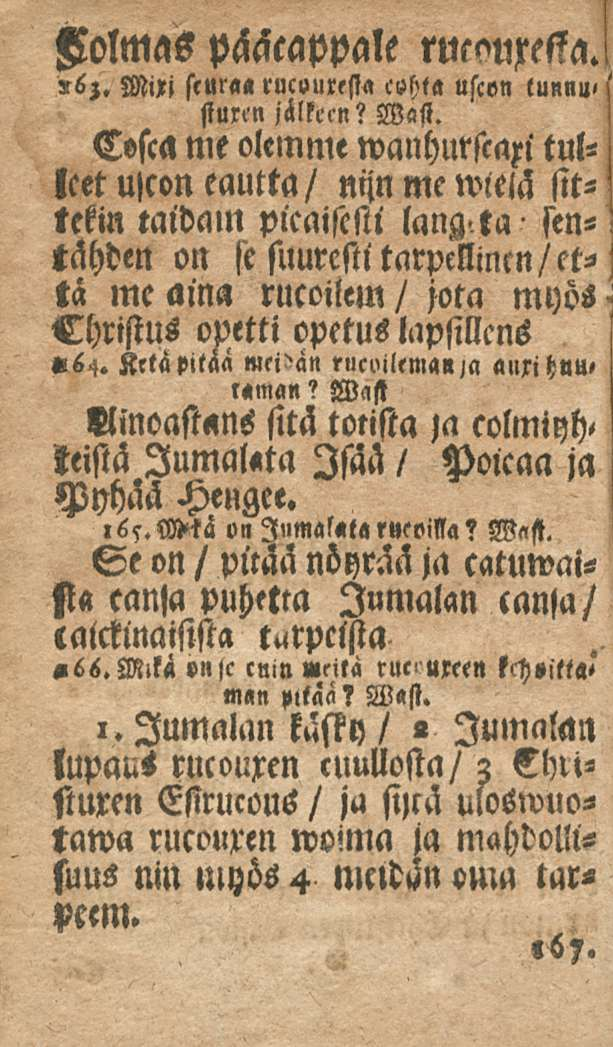 Colmas pääcappale rucouxesta.
163. Mixi seuraa rucouxesta cohta uscon tunnu-
stuxen jälkeen? Wast.
Cosca me olemme wanhurscaxi tul-
leet uscon cautta / nijn me wielä sit-
tekin taidam picaisesti langeta sen-
tähden on se suuresti tarpellinen / et-
tä me aina rucoilem / jota myös
Christus opetti opetus lapsillens
164. Ketä pitää meidän rucoileman ja auxi huu-
taman? Wast
Ainoastans sitä totista ja colmiyh-
teistä Jumalata Isää / Poicaa ja
Pyhää Hengee.
165. Mikä on Jumalata rucoilla? Wast.
Se on / pitää nöyrää ja catuwai-
sta cansa puhetta Jumalan cansa /
caickinaisista tarpeista
166. Mikä on se cuin meitä rucouxeen kehoitta-
man pitää? Wast.
1. Jumalan käsky / 2 Jumalan
lupaus rucouxen cuullosta / 3 Chri-
stuxen Esirucous / ja sijtä uloswuo-
tawa rucouxen woima ja mahdolli-
suus nin myös 4 meidän oma tar-
peem.
167.